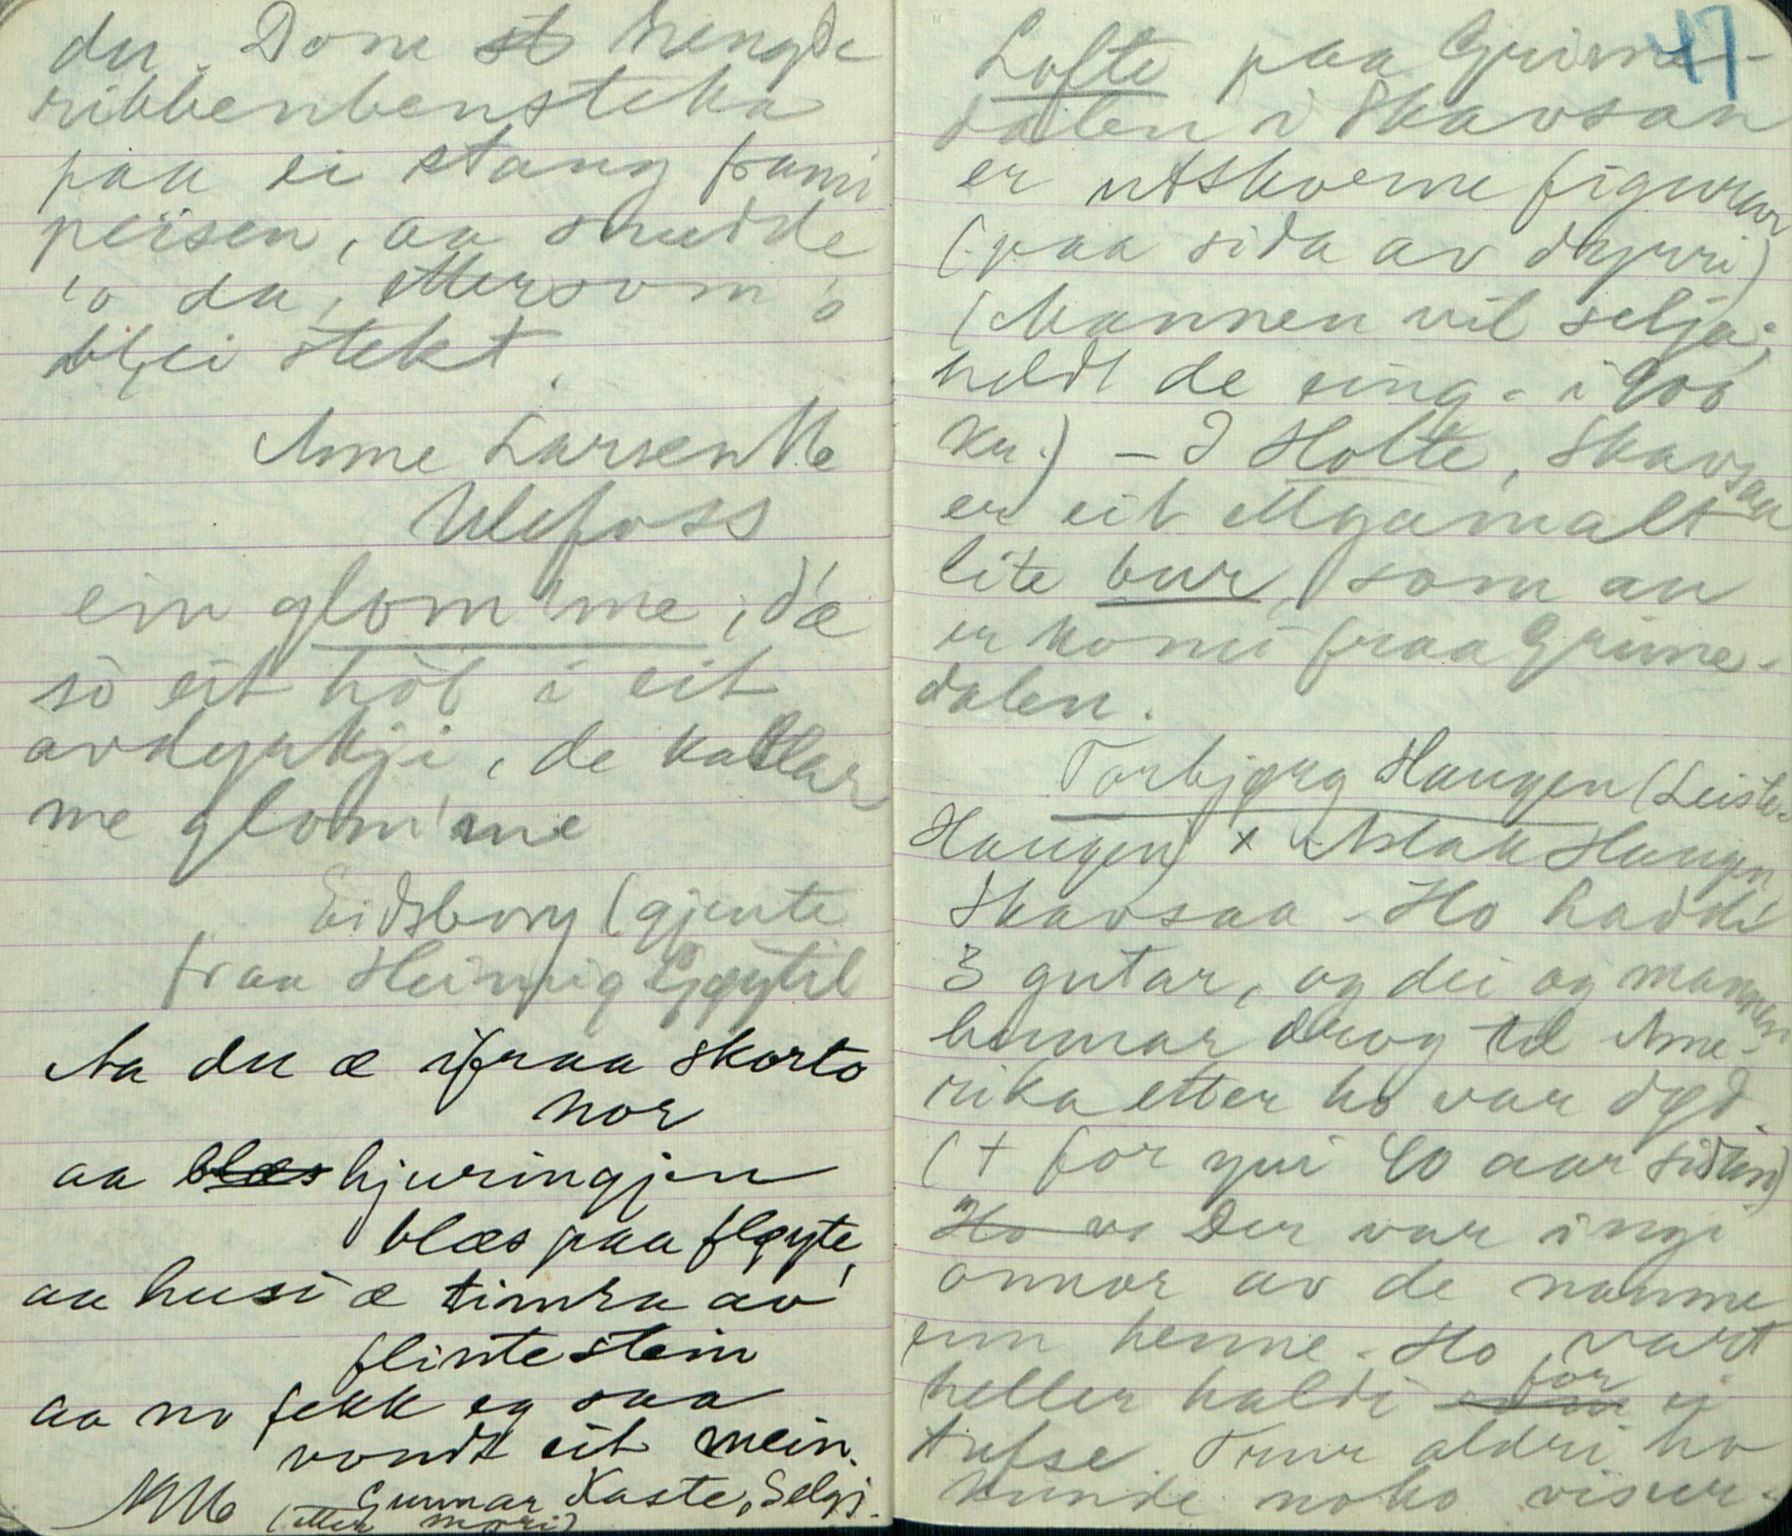 du. Dom st hengde
ribbenbensteka
paa ei stang frami
peisen, aa snudde
'o da, ettersom 'o
blei stekt.
Anne Larsen Mo
Ulefoss
ein glom'me, d'æ
so eit hòl i eit
avdyrkji, de kallar
me glom'me
Eidsborg (gjente
fraa Heimig Gjøytil
Aa du æ ifraa skorto
nor
aa blæs hjuringjen
blæs paa fløyte,
aa husi æ timra av
flintestein
aa no fekk eg saa
vondt eit mein.
Gunnar Kaste, Selgj.
(etter mori)
47
Lofte paa Grime-
dalen i Skavsaa
er utskorne figurar
(paa sida av dyrri)
(Mannen vil selja;
heldt de eing. i 900
Kr.) - I Holte, Skavsaa
er eit ellgamalt
lite bur, som au
er komi fraa Grime-
dalen.
Torbjørg Haugen (Leiste-
Haugen) x Aslak Haugen
Skavsaa - Ho hadde
3 gutar, og dei og mannen
hennar drog til Ame-
rika etter ho var død.
(+ for yvi 40 aar sidan)
Ho va Der var ingi
onnor av de namne
enn henne. Ho vart
heller haldi for ei
tufse. Trur aldri ho
kunde noko visur.